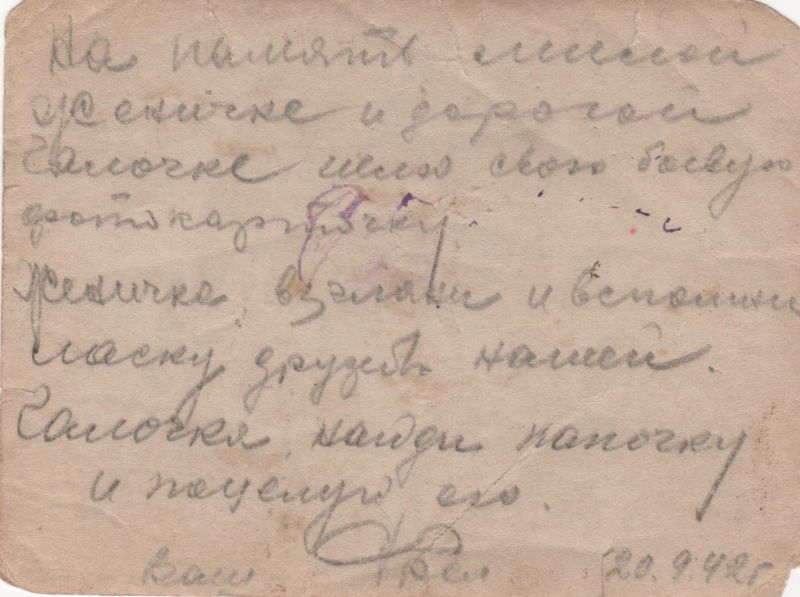 На память милой
Женичке и дорогой
Галочке шлю свою боевую
фотокарточку.
Женичка, взгляни и вспомни
ласку дружбы нашей.
Галочка, найди папочку
и поцелуй его.
Ваш 20.9.42 г.